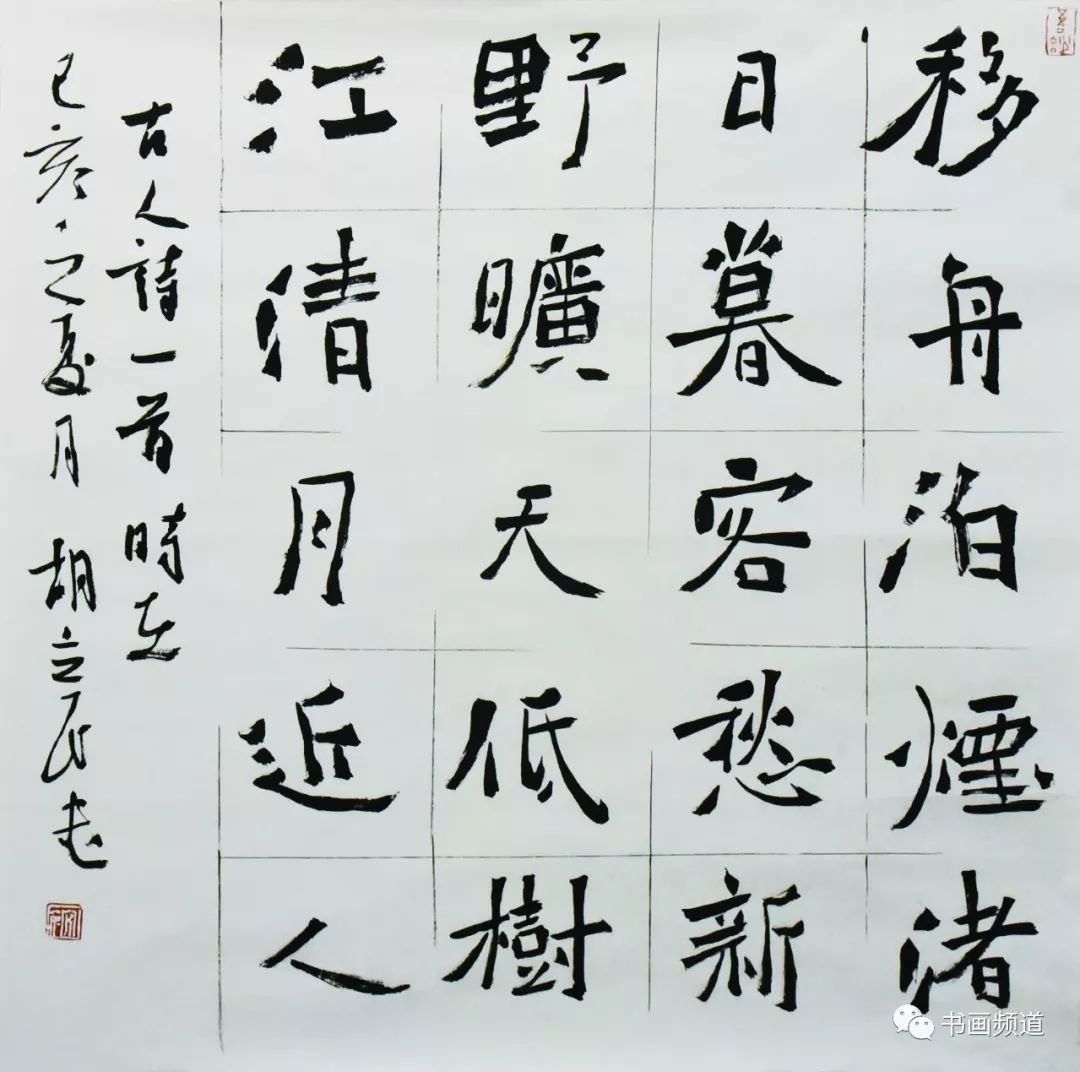 移舟泊煙渚
日暮客愁新
野曠天低樹
江清月近人
古人詩一首 時在
己亥之夏月 胡立民书
书画频道